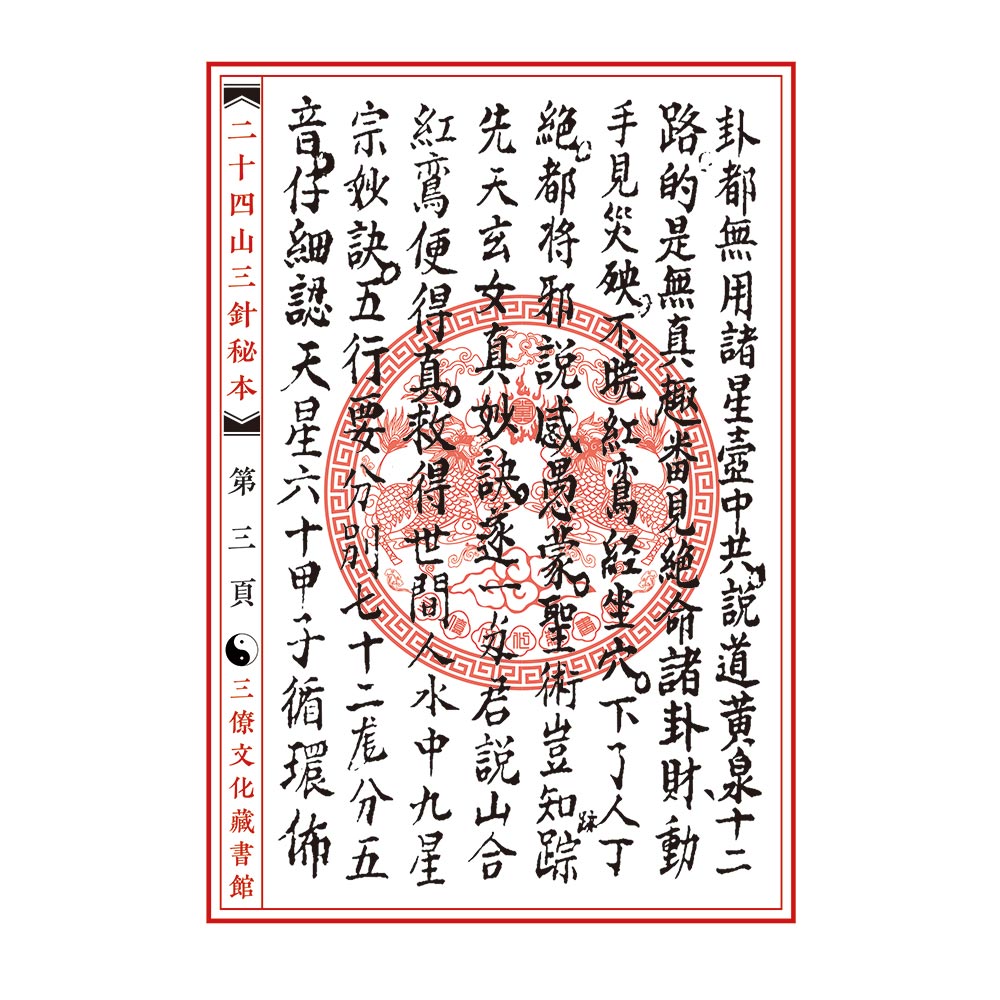 卦都無用諸星壺中共說道黃泉十二
路的是無真趣番見絕命諸卦財動
手見災殃不曉紅鸞經坐穴下了人丁
絕都将邪說惑愚蒙聖術豈知踪
跡
先天玄女真妙訣逐一為君說山合
紅鸞便得真救得世間人水中九星
宗妙訣五行要分別七十二龙分五
音仔細認天星六十甲子循環佈
二十四山三針秘本
第三頁
三僚文化藏書館